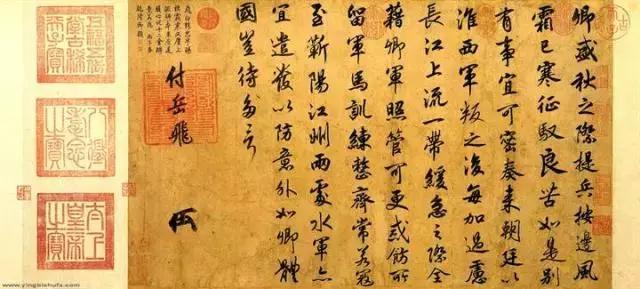 卿盛秋之際提兵按邊風
霜已寒征馭良苦如是別
有事宜可密奏来朝廷以
淮西軍叛之後每加過慮
長江上流一帶緩急之際全
藉卿軍照管可更戒飭所
留軍馬訓練整齊常若寇
至蘄陽江州兩處水軍亦
宜遣發以防意外如卿體
國豈待多言
付岳飛
八徵耄念之寶
太上皇帝之寶
www.yingbishufa.com